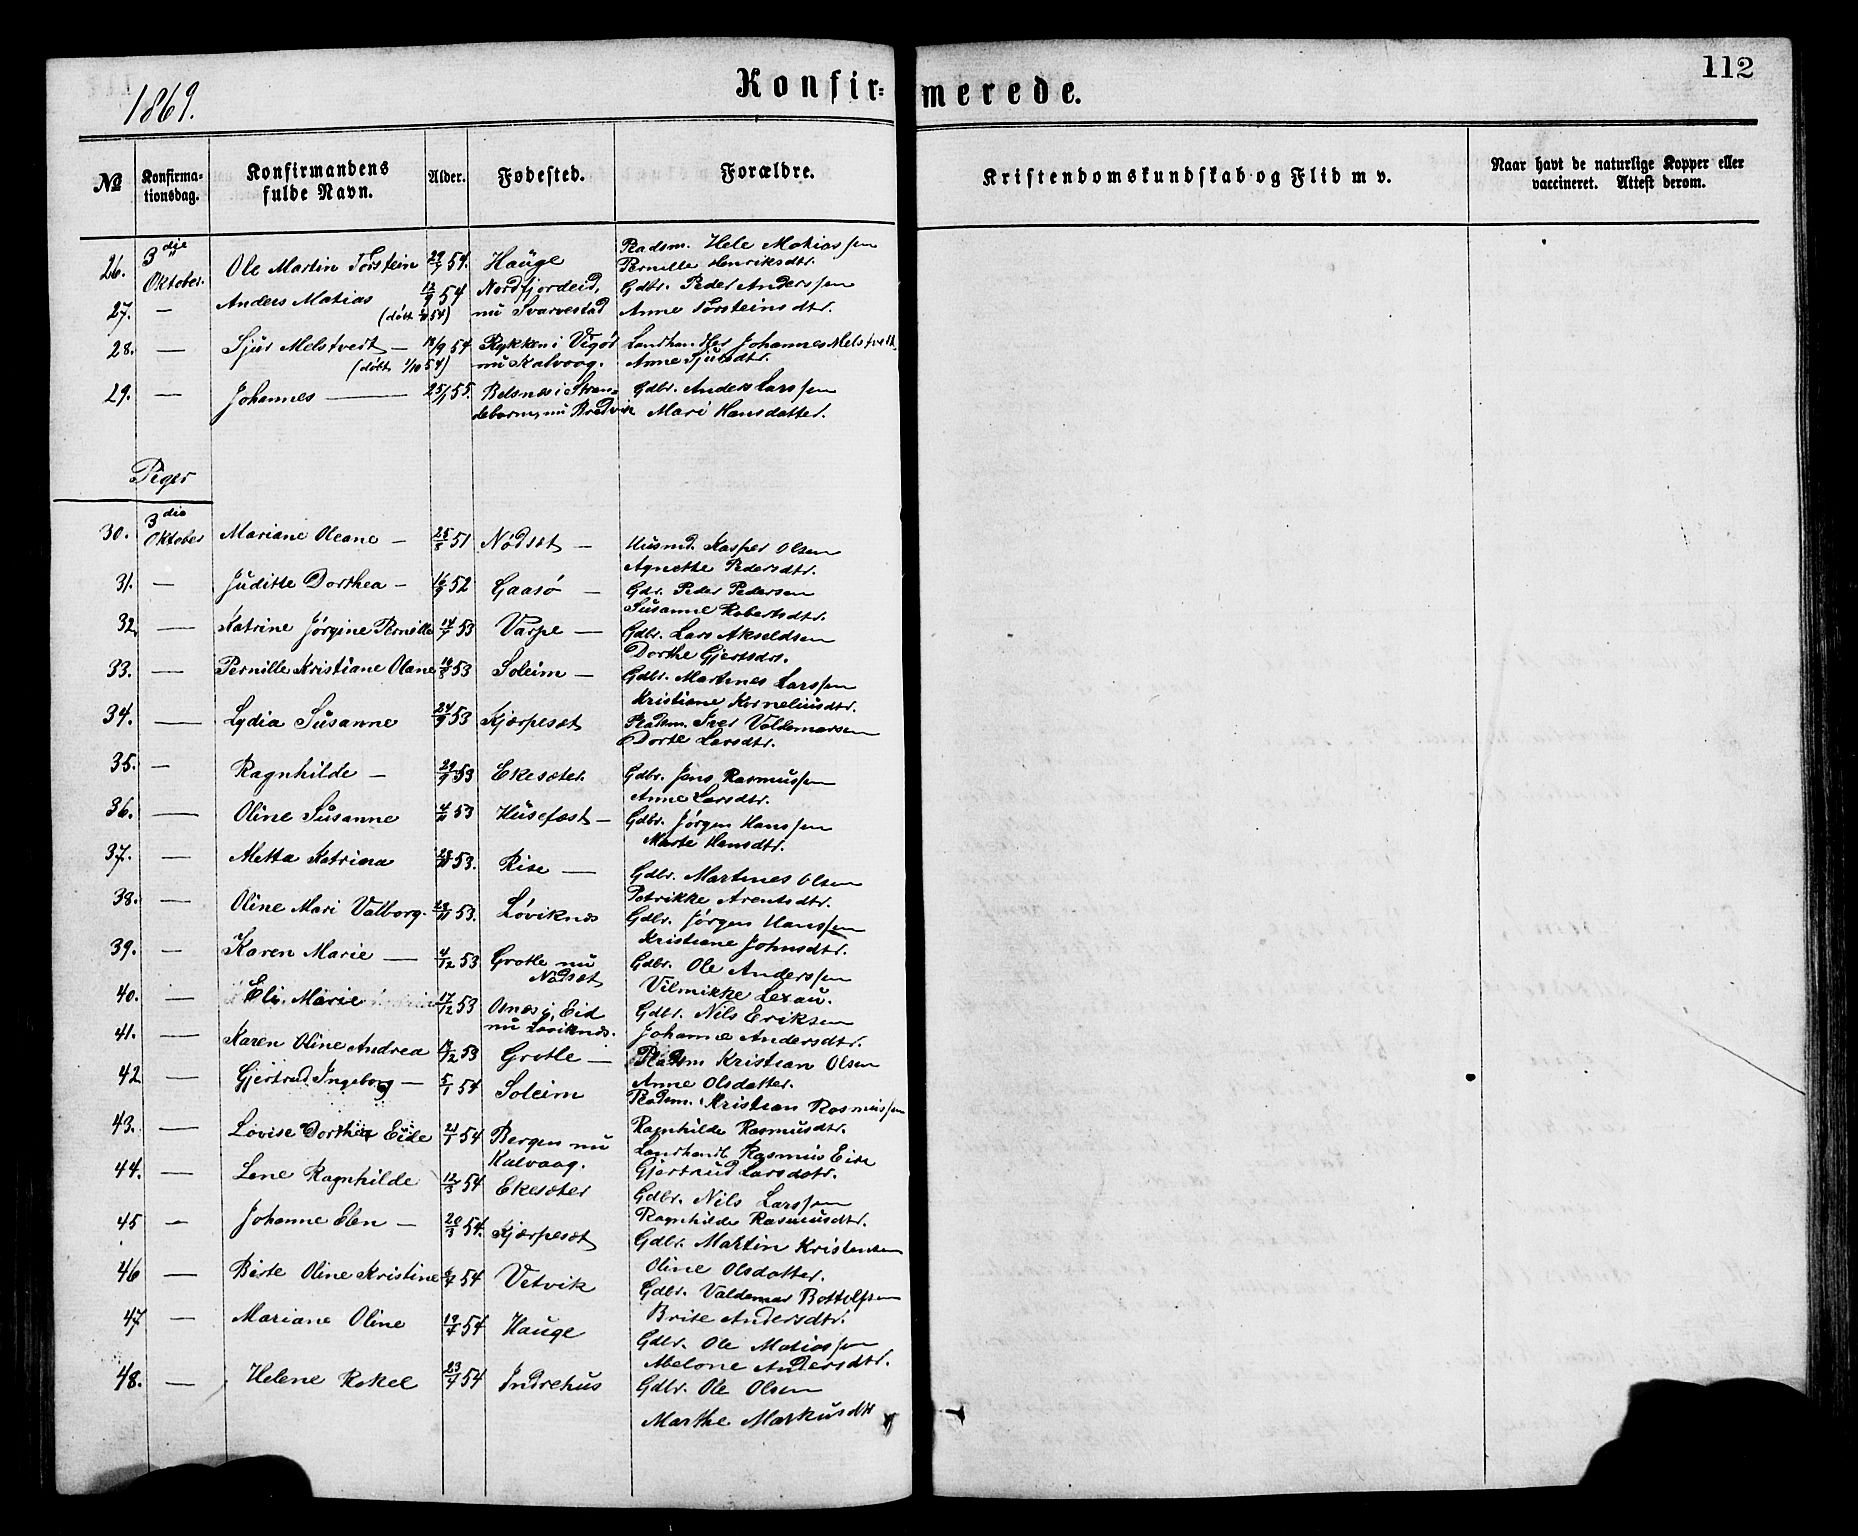 112
1869.
Konfir= merede.
№ Konfirma- tionsdag. Konfirmandens fulde Navn. Alder. Fødested. Forældre. Kristendomskundskab og Flid m v. Naar havt de naturlige Kopper eller vaccineret. Attest derom.
26. 3die Oktober. Ole Martin Torstein 54. Hauge Pladsm. Hele Matiassen
Pernille Henriksdtr.
27. — Anders Matias 12/9 54 Nordfjordeid, Gdbr. Peder Anderssen
(døbt 54) nu Svarvestad Anne Torsteinsdtr.
28. — Sjur Melstvedt — 18/9 54 Rykken i Vigør Landhandler Johannes Melstvedt
(døbt 1/10 54) nu Kalvaag. Anne Sjursdtr.
29. — Johannes — 25/1 55. Belsnes i Stran- Gdbr. Anders Larssen
debarm, nu Bredvik Mari Hansdatter.
Piger
30. 3die Oktober Mariane Oleane — 51 Nødset — Husmd. Kasper Olsen
Agnethe Pedersdtr.
31. — Juditte Dorthea — 52 Gaasø — Gdr. Peder Pedersen
Susanne Robertsdtr.
32. — Katrine Jørgine Pernille 53 Varpe — Gdbr. Lars Akseldsen
Dorthe Gjertsdtr.
33. — Pernille Kristiane Olane 53 Soleim — Gdbr. Martines Larssen
Kristiane Korneliusdtr.
34. — Lydia Susanne 24/9 53 Kjærpeset Pladsm. Iver Valdemarsen
Dorte Larsdtr.
35. — Ragnhilde — 29/9 53 Ekeseter Gdbr. Jens Rasmussen
Anne Larsdtr.
36. — Oline Susanne 53 Husefæst — Gdbr. Jørgen Hanssen
Marte Hansdtr.
37. — Metta Katrina 53. Rise — Gdbr. Martines Olsen
Petrikke Arentsdtr.
38. — Oline Mari Valborg. 53. Løviknes Gdbr. Jørgen Hanssen
Kristiane Johnsdtr.
39. — Karen Marie — 4/12 53 Grotle nu Gdbr. Ole Anderssen
Nødset Vilmikke Lexau.
40. — Eli Marie 17/12 53 i Eid Gdbr. Nils Eriksen
nu Løviknes. Johanne Andersdtr.
41. — Karen Oline Andrea 53 Grotle — Pladsm Kristian Olsen
Anne Olsdatter.
42 — Gjertrud Ingeborg — 5/1 54 Soleim Pladsm. Kristian Rasmussen
Ragnhilde Rasmusdtr.
43. — Lovise Dorthea Eide 21/1 54 Bergen nu Landhandl. Rasmus Eide
Kalvaag. Gjertrud Larsdatr.
44. — Lene Ragnhilde 12/3 54 Ekeseter Gdbr. Nils Larssen
Ragnhilde Rasmusdtr.
45 — Johanne Elen — 20/3 54. Kjærpeset Gdbr. Martin Kristensen
Oline Olsdatter.
46 — Birte Oline Kristine 54 Vetvik Gdbr. Valdemar Bottolfsen
Brite Andersdtr.
47 — Mariane Oline 19/4 54 Hauge Gdbr. Ole Matiassen
Abelone Andersdtr.
48. — Helene Rakel 23/4 54 Indrehus Gdbr. Ole Olsen
Marthe Markusdtr